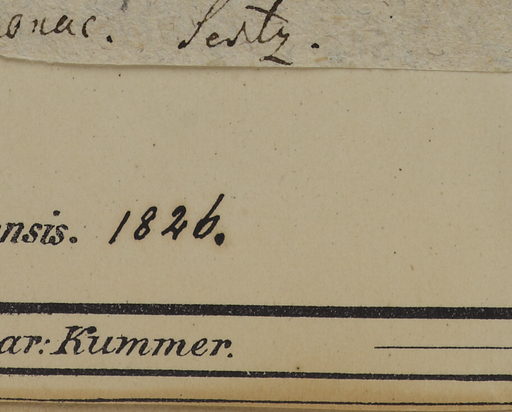 onac. Sertz.
nsis. 1826.
ar: Kummer.